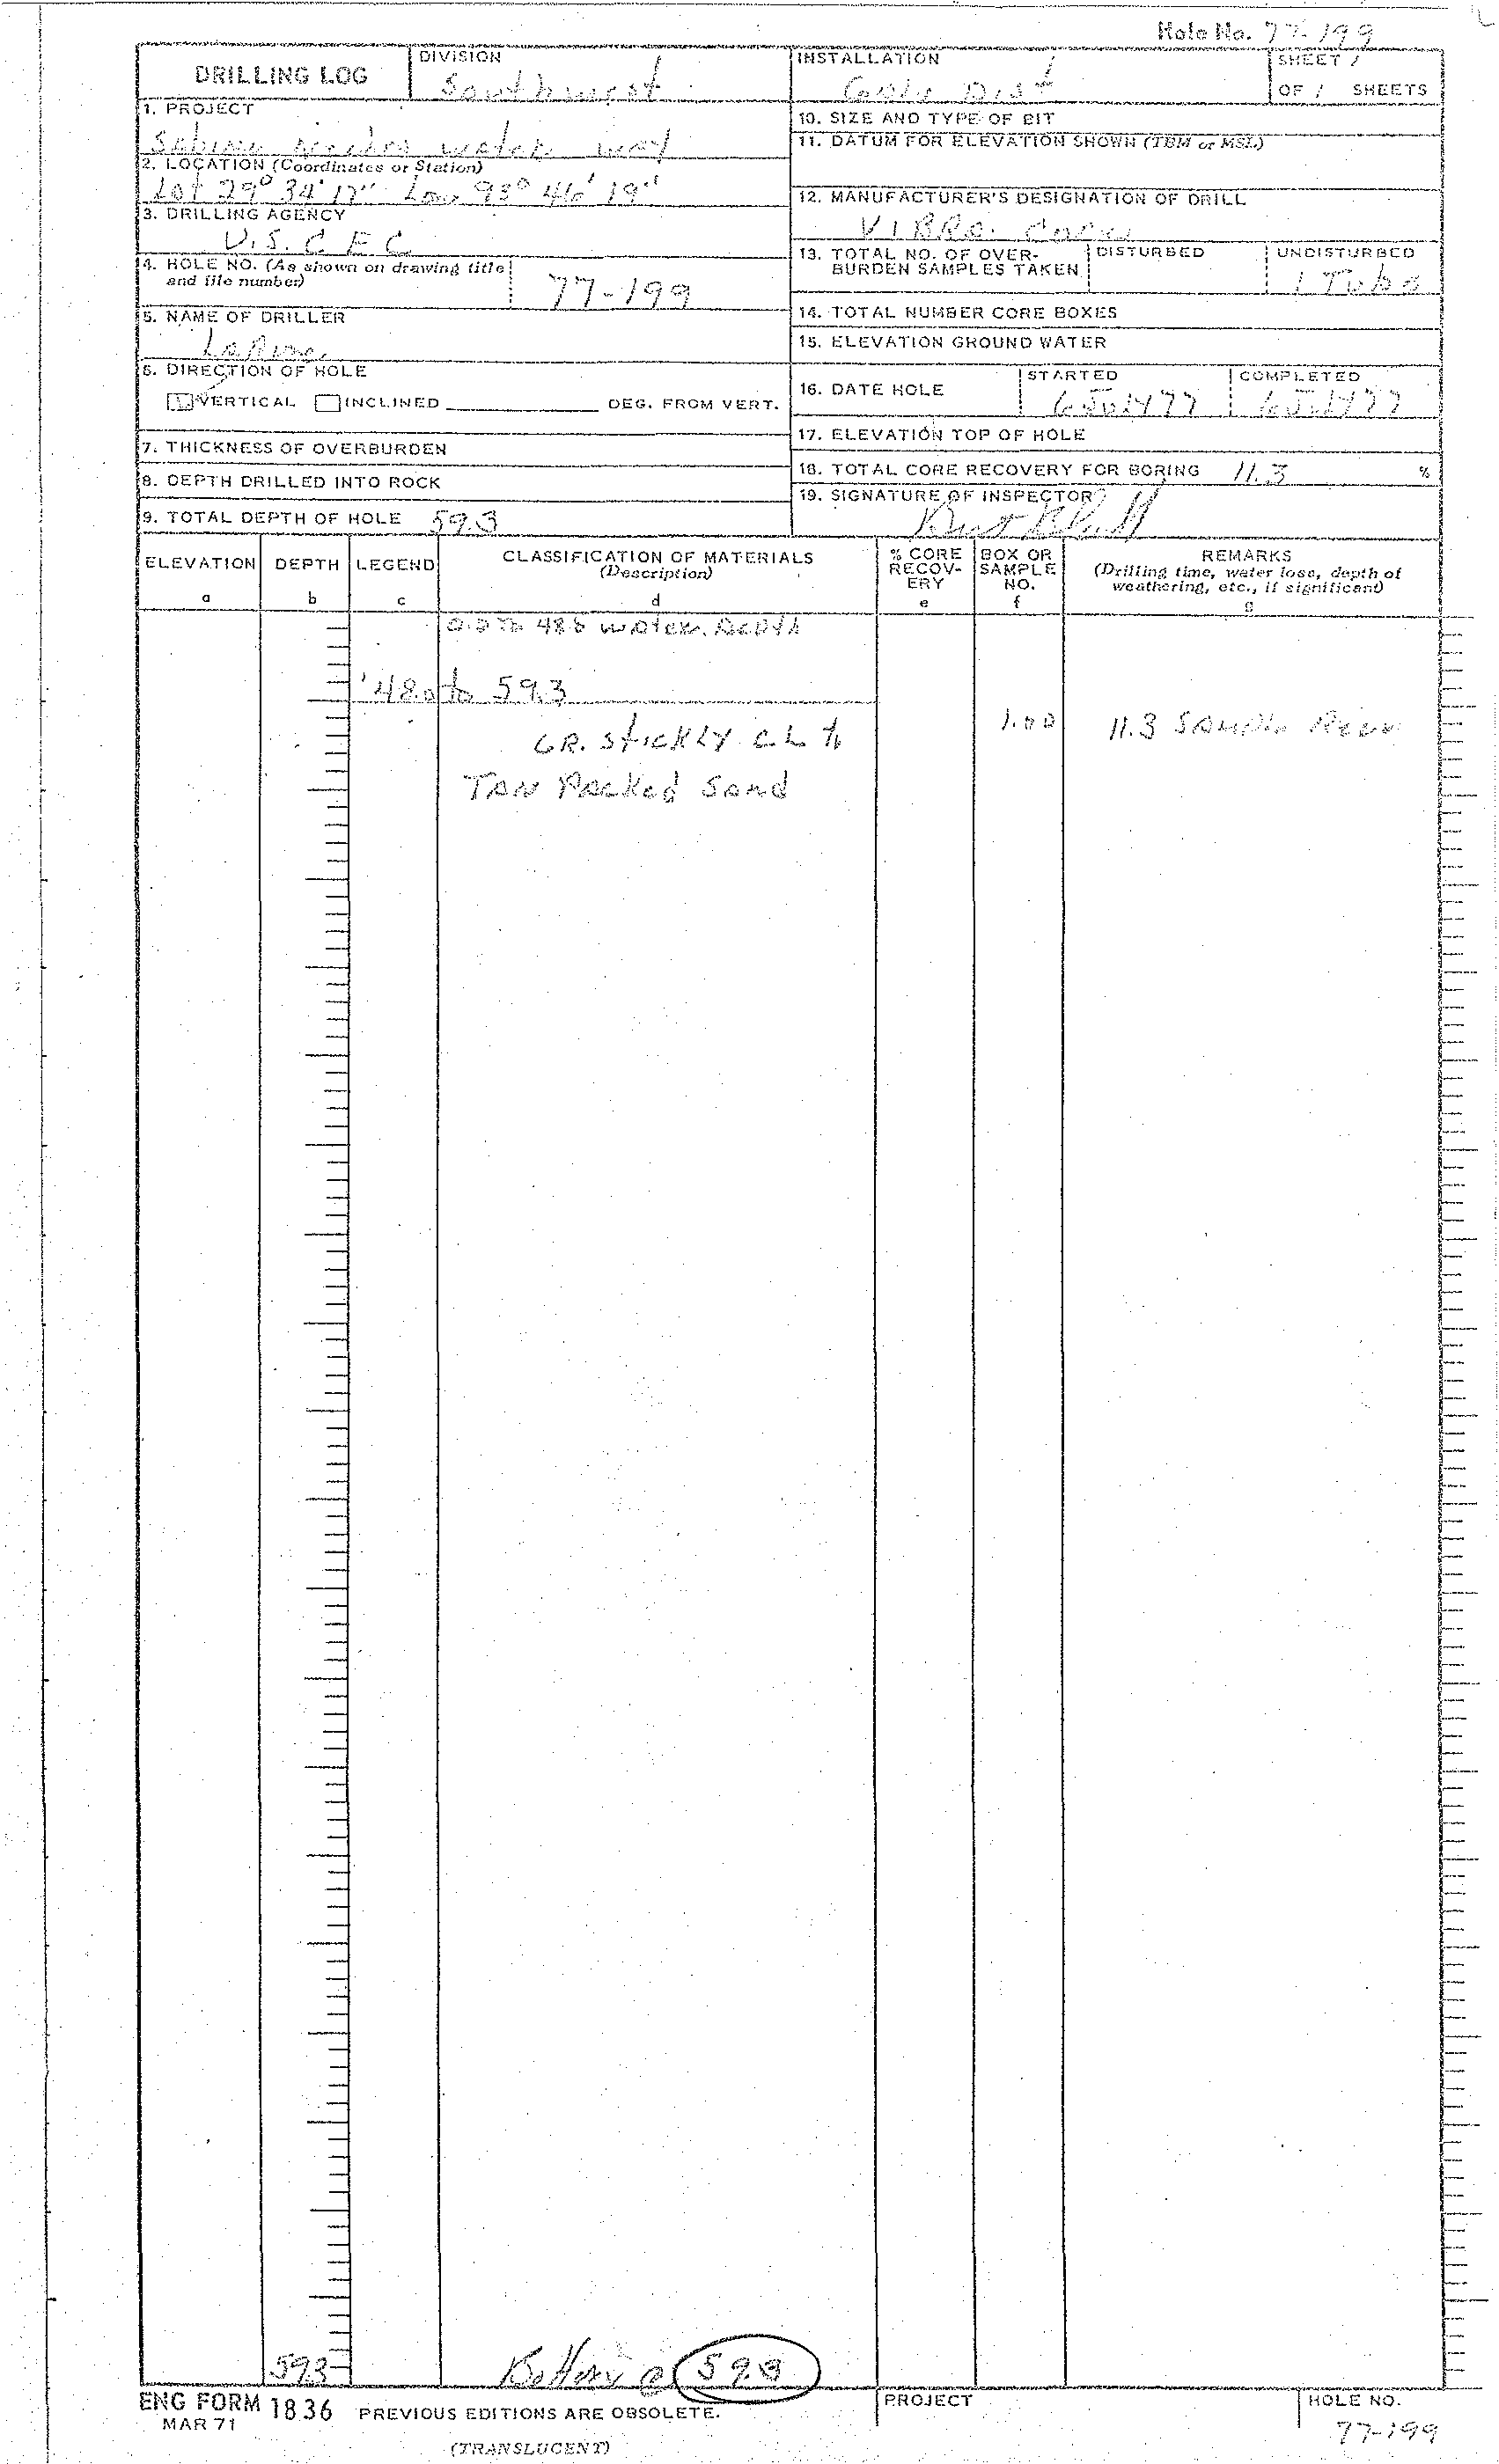 Hole No. 77-199
DRILLING LOG
DIVISION
Southwest
INSTALLATION
Galv Dist
SHEET 1
OF 1 SHEETS
1. PROJECT
Sabine water way
2. LOCATION (Coordinates or Station)
Lat 29° 34' 17" Lon 93° 46' 19"
3. DRILLING AGENCY
U.S.C.E.C
4. HOLE NO. (As shown on drawing title
and file number)
77-199
5. NAME OF DRILLER
6. DIRECTION OF HOLE
VERTICAL INCLINED DEG. FROM VERT.
7. THICKNESS OF OVERBURDEN
8. DEPTH DRILLED INTO ROCK
9. TOTAL DEPTH OF HOLE 59.3
10. SIZE AND TYPE OF BIT
11. DATUM FOR ELEVATION SHOWN (TBM or MSL)
12. MANUFACTURER'S DESIGNATION OF DRILL
VIBRO. Core
13. TOTAL NO. OF OVER-
BURDEN SAMPLES TAKEN
DISTURBED
UNDISTURBED
1 Tube
14. TOTAL NUMBER CORE BOXES
15. ELEVATION GROUND WATER
16. DATE HOLE
STARTED
6 July 77
COMPLETED
6 July 77
17. ELEVATION TOP OF HOLE
18. TOTAL CORE RECOVERY FOR BORING 11.3 %
19. SIGNATURE OF INSPECTOR
ELEVATION
a
DEPTH
b
LEGEND
c
CLASSIFICATION OF MATERIALS
(Description)
d
% CORE
RECOV-
ERY
e
BOX OR
SAMPLE
NO.
f
REMARKS
(Drilling time, water loss, depth of
weathering, etc., if significant)
g
0.0 To 48.0 water Depth
48.0 to 59.3
GR. STICKLY CL %
TAN Packed Sand
1.00
11.3 Sample Recov
59.3
Bottom @ 59.3
ENG FORM 1836
MAR 71
PREVIOUS EDITIONS ARE OBSOLETE.
(TRANSLUCENT)
PROJECT
HOLE NO.
77-199